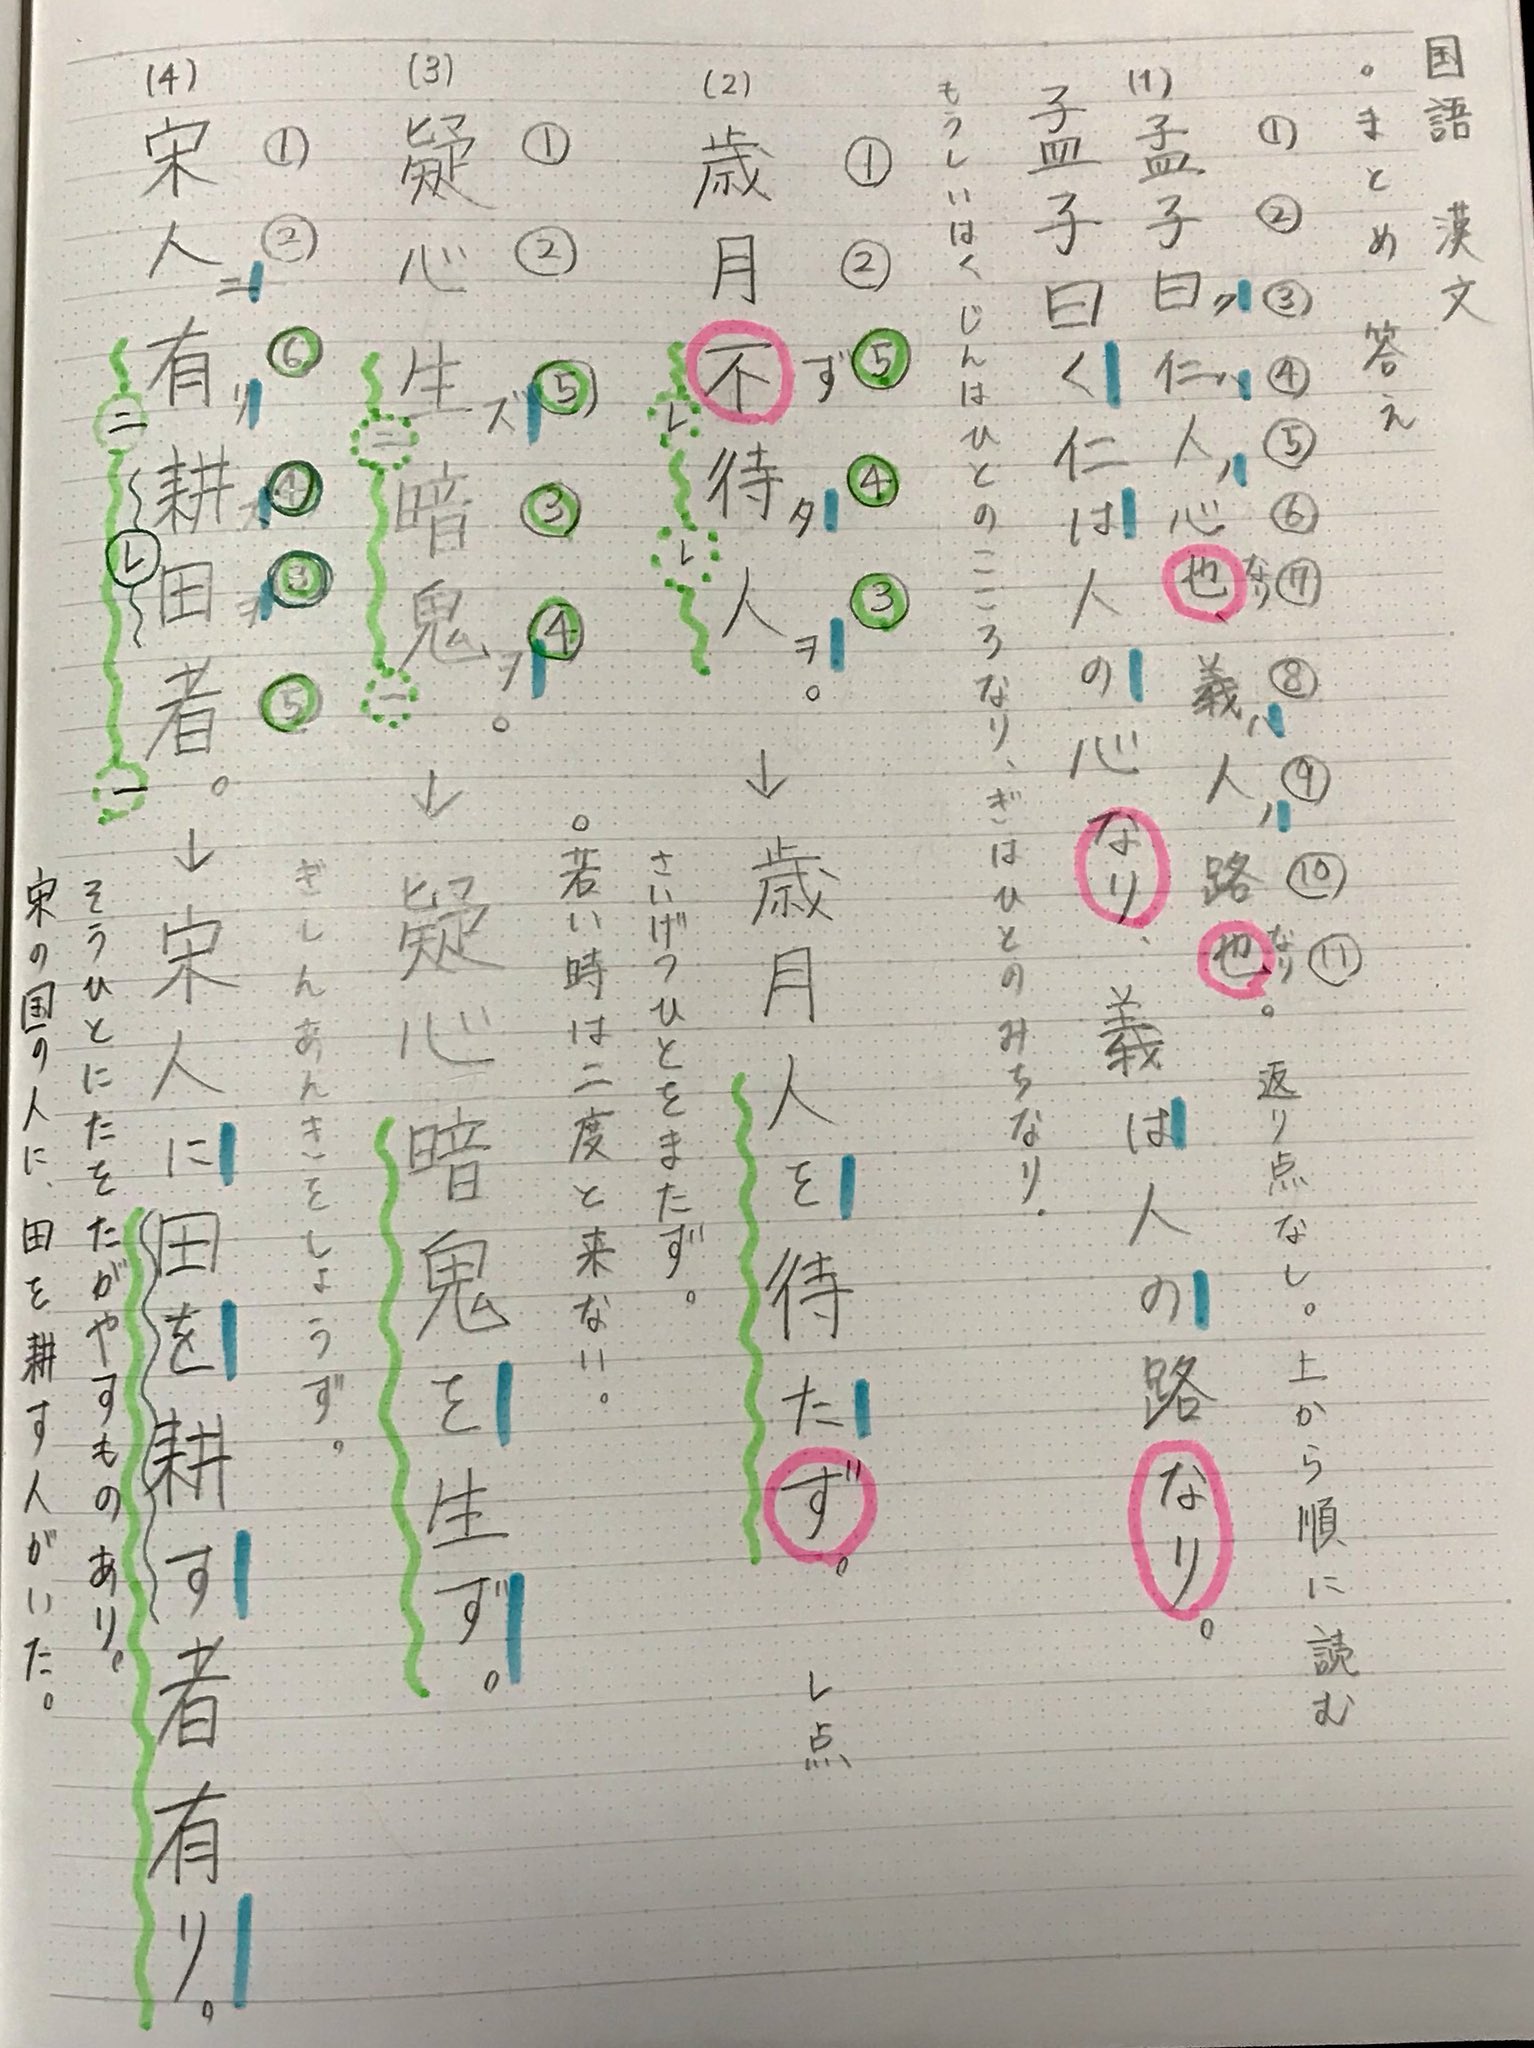 国語 漢文
。まとめ 答え
① ② ③ ④ ⑤ ⑥ ⑦ ⑧ ⑨ ⑩ ⑪
(1) 孟子曰ク仁ハ人ノ心也なり義ハ人ノ路也なり。 返り点なし。上から順に読む
孟子曰く仁は人の心なり、義は人の路なり。
もうしいはくじんはひとのこころなり、ぎはひとのみちなり.
① ② ⑤ ④ ③
(2) 歳月不ずレ待タレ人ヲ。→歳月人を待たず。 レ点
さいげつひとをまたず。
。若い時は二度と来ない。
① ② ⑤ ③ ④
(3) 疑心生ズ二暗鬼ヲ一。→疑心暗鬼を生ず。
ぎしんあんきをしょうず。
① ② ⑥ ④ ③ ⑤
(4) 宋人ニ有リ二耕スレ田ヲ者一。→宋人に田を耕す者有り。
そうひとにたをたがやすものあり。
宋の国の人に、田を耕す人がいた。